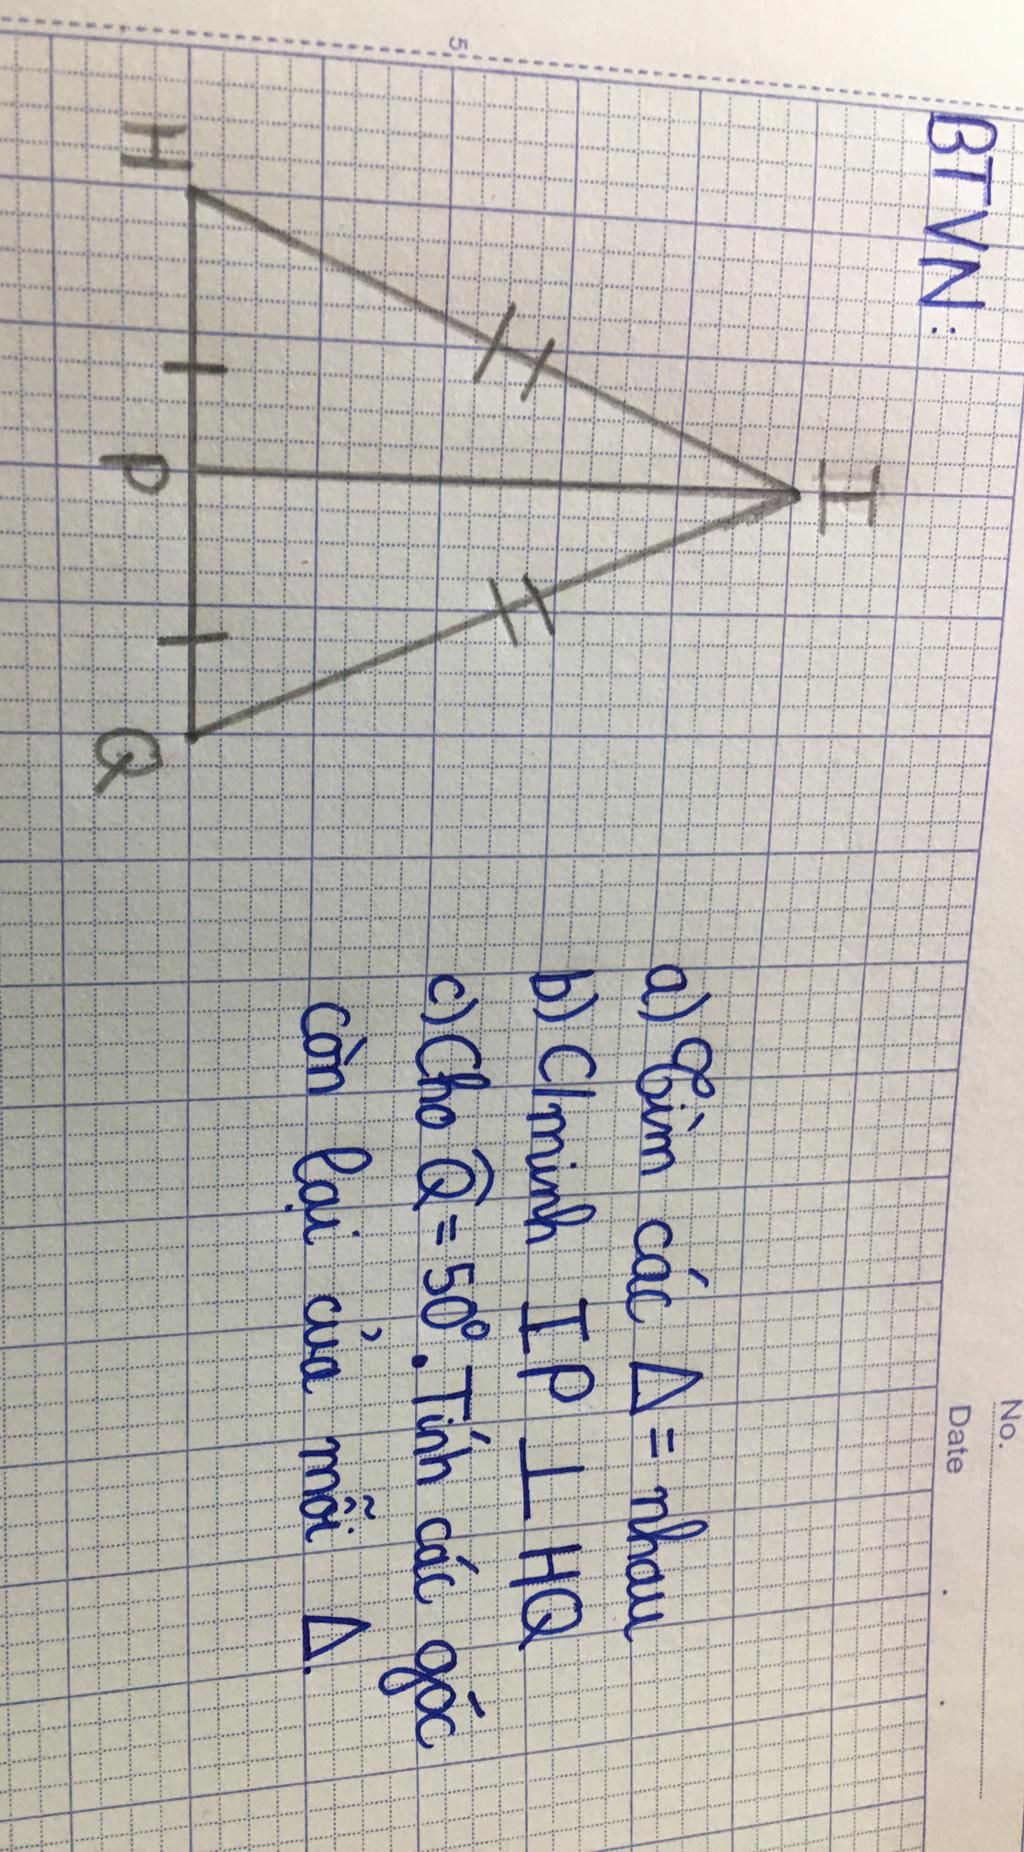 No.
Date
BTVN:
I
H
P
Q
5
a) Tìm các Δ = nhau
b) C/minh IP ⊥ HQ
c) Cho Q̂ = 50°. Tính các góc
còn lại của mỗi Δ.